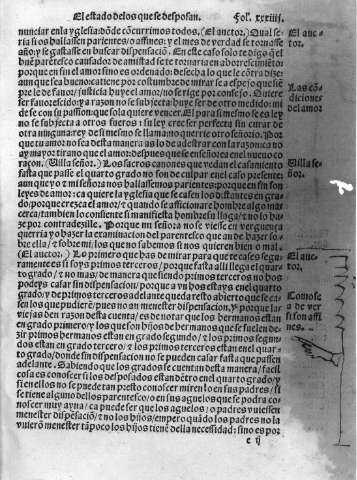 El estado de los que se desposan. Fol. xxxiiij.
nunciar en la yglesia dõde cõcurrimos todos. (El auctor.) Qual se
ria si os hallassen parientes/o affines: y el mes de verdad se tornasse
año/y se gastasse en buscar dispensaciõ. En este caso solo te digo q̃ el
bue parētesco causador de amistad se te tornaria en aborrescimiēto:
porque en fin el amor sino es ordenado: desecha lo que le cõtradizer
aunque sea bueno: acaríne por costumbre de mirar a
pre le de fauor/justicia huye el amor/no se rige por consejo. Quiere
ser fauorescido: y a razon no se subjecta: huye ser de otro medido: mi
de se con su passion: que sola quiere vencer. El para si mesmo se es ley
no se subjecta a otros fueros: si fuley cree ser perfecta sin curar de
otra ninguna: rey de si mesmo se llama: no querrie otro señorio. Por
que tu amor no sea desta manera as lo de adestrar con la razon: ca no
ay mayor tirano que el amor: despues que se enseñorea en el nueuo co
raçon. (Villa señor.) Los sacros canones que vedan el casamiento
fasta que passe el quarto grado no son de culpar en el caso presente:
aun que yo τ mi señora nos hallassemos parientes: porque en fin son
leyes de amor: ca quiere la yglesia que se casen los distantes en gra
do: porque crezca el amor/τ quando se afficionare hombre algo mas
cerca/tambien lo consiente si manifiesta hombre su llaga/τ no lo ha
ze por contradezille. Porque mi señora no se viesse en verguença
querria yo hazer la examinacion del parentesco que an de hazer so
bre ella/τ sobre mi: los que no sabemos si nos quieren bien o mal.
(El auctor.) Lo primero que has de mirar para que te cases segu
ramente es si soys primos terceros/porque fasta alli llega el quar
to grado/τ no mas: de manera que siendo primos terceros no hos
podeys casar sin dispensacion/porque a vn hos estays en el quarto
grado/y de primos terceros adelante queda resto abierto que se ca-
sen los que pudierē/pues no an menester dispensacion. Y porque lar
ue jas den razon desta cuenta/es de notar que los hermanos estan
en grado primero/y los son hijos de hermanos que se suelen de-
zir primos hermanos estan en grado segundo/τ los primos segun
dos estan en grado tercero/τ los primos terceros estan en el quar-
to grado/donde sin dispensacion no se pueden casar fasta que passen
adelante. Sabiendo que los grados se cuentan desta manera/facil
cosa es conoscer si los desposados estan dētro en el quarto grado/y
si en ellos no se puede tan presto conoscer miren lo en sus padres/si
se tiene algun o dellos parentesco/o en sus aguelos que se podra co
noscer muy ayna/ca puede ser que los aguelos/o padres vuiessen
menester dispēsaciō/τ no los hijos/empero quādo los padres no la
vuierō menester tāpoco los hijos tienē della necessidad: sino es por
e ij
El auc-
tor.
Las cõ-
diciones
del amor
Villa se
ñor.
El auc-
tor.
Como se
a de ver
si son affi
nes.